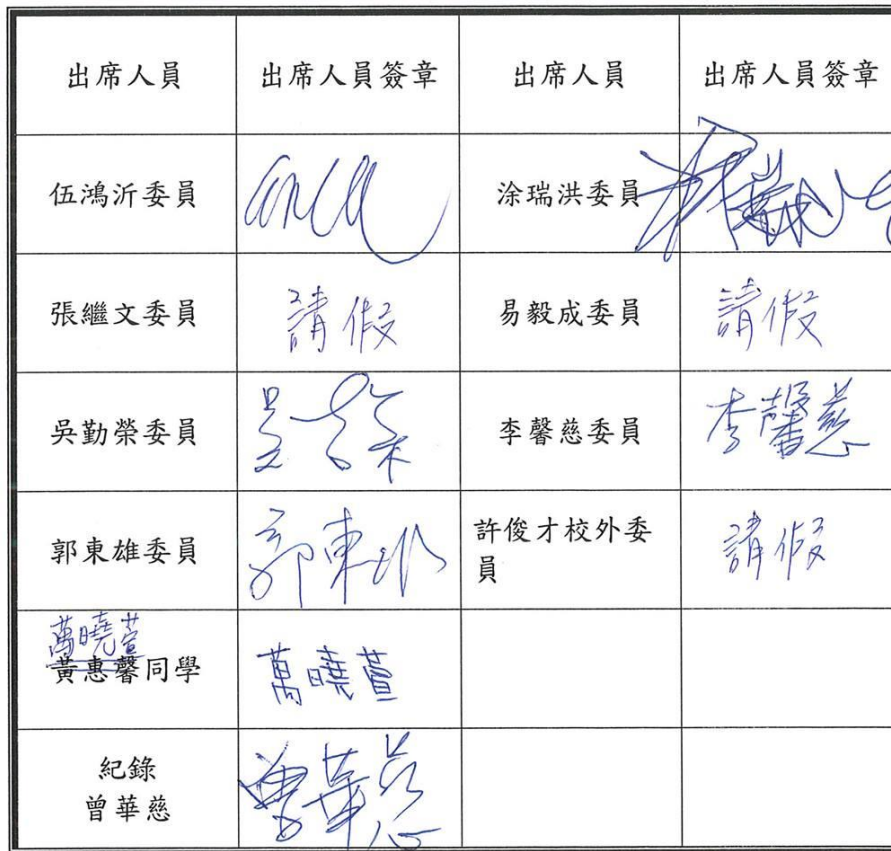 出席人員 出席人員簽章 出席人員 出席人員簽章
伍鴻沂委員 涂瑞洪委員
張繼文委員 請假 易毅成委員 請假
吳勤榮委員 李馨慈委員 李馨慈
郭東雄委員 郭東雄 許俊才校外委
員 請假
萬曉萱
黃惠馨同學 萬曉萱
紀錄
曾華慈 曾華慈